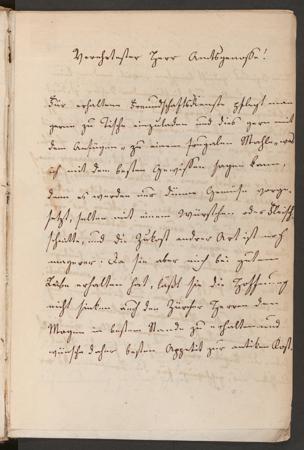 Verehrtester Herr Amtsgenosse!
Für erhaltene Freundschaftsdienste pflegt man
gerne zu Tische einzuladen und dies gern mit
dem Anfügen "zu einem frugalen Mahle", was
ich mit dem besten Gewissen sagen kann,
denn es werden nur dünne Gemüse vorge-
setzt, selten mit einem Würstchen oder Fleisch-
schnitte, und die Zukost andrer Art ist noch
magerer. Da sie aber mich bei gutem
Laune erhalten hat, läßt sie die Hoffnung
nicht sinken auch den Zürcher Herren den
Magen in bestem Stande zu erhalten und
wünsche daher besten Appetit zur antiken Kost.